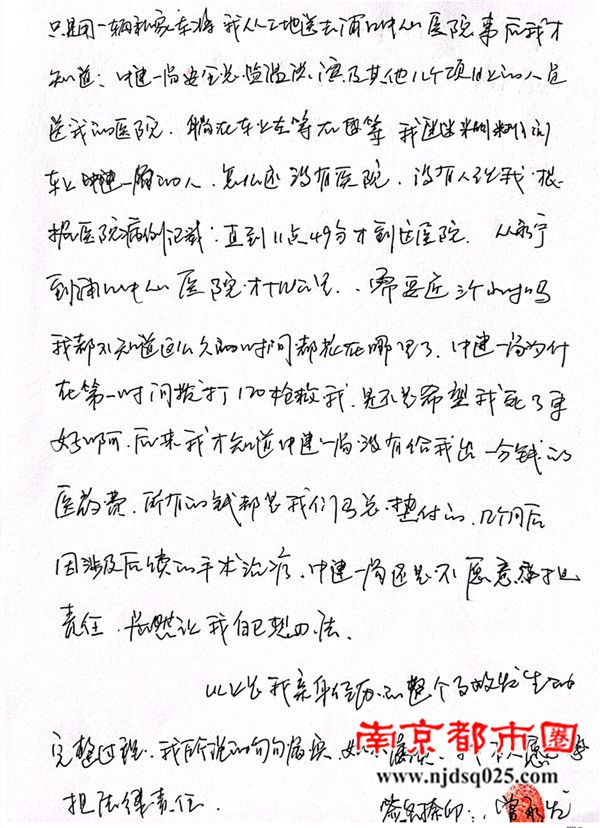 只是用一辆私家车将我从工地送去浦口中心医院事后我才
知道：中建一局安全总监温洪滨及其他几个项目上的人员
送我的医院．躺在车上左等右等 我迷迷糊糊问
车上中建一局的人．怎么还没有医院．没有人理我．根
据医院病例记载：直到11点49分才到达医院．从永宁
到浦口中心医院．才十几公里．．需要近三个小时吗
我都不知道这么久的时间都花在哪里了．中建一局为什
在第一时间拨打120抢救我．是不是希望我死了更
好啊．后来我才知道中建一局没有给我出一分钱的
医药费．所有的钱都是我们马总垫付的．几个月后
因涉及后续的手术治疗．中建一局还是不愿意承担
责任．居然让我自己想办法．
以上是我亲身经历的整个事故发生的
完整过程．我所说的句句属实．本人愿
担法律责任．签名捺印：
南京都市圈
www.njdsq025.com